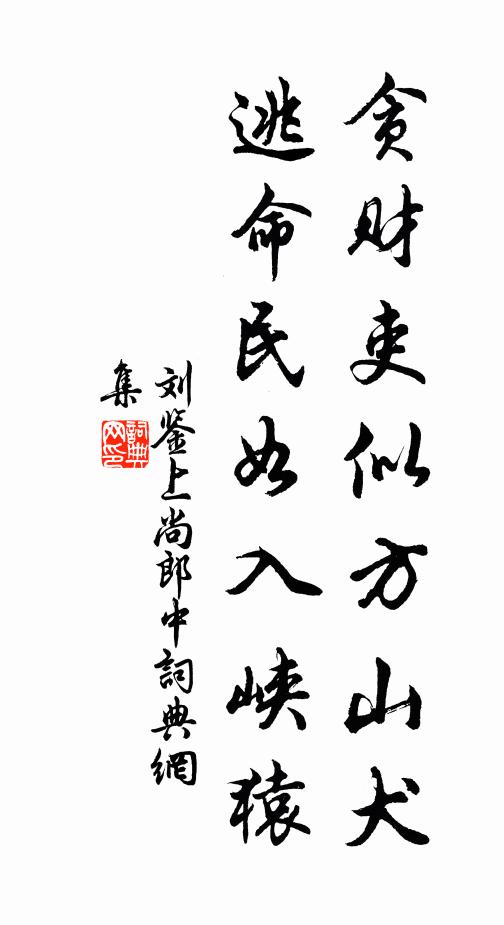 贪财吏似方山犬
逃命民如入峡猿
刘鉴上尚郎中詞典網
集
詞典
网印